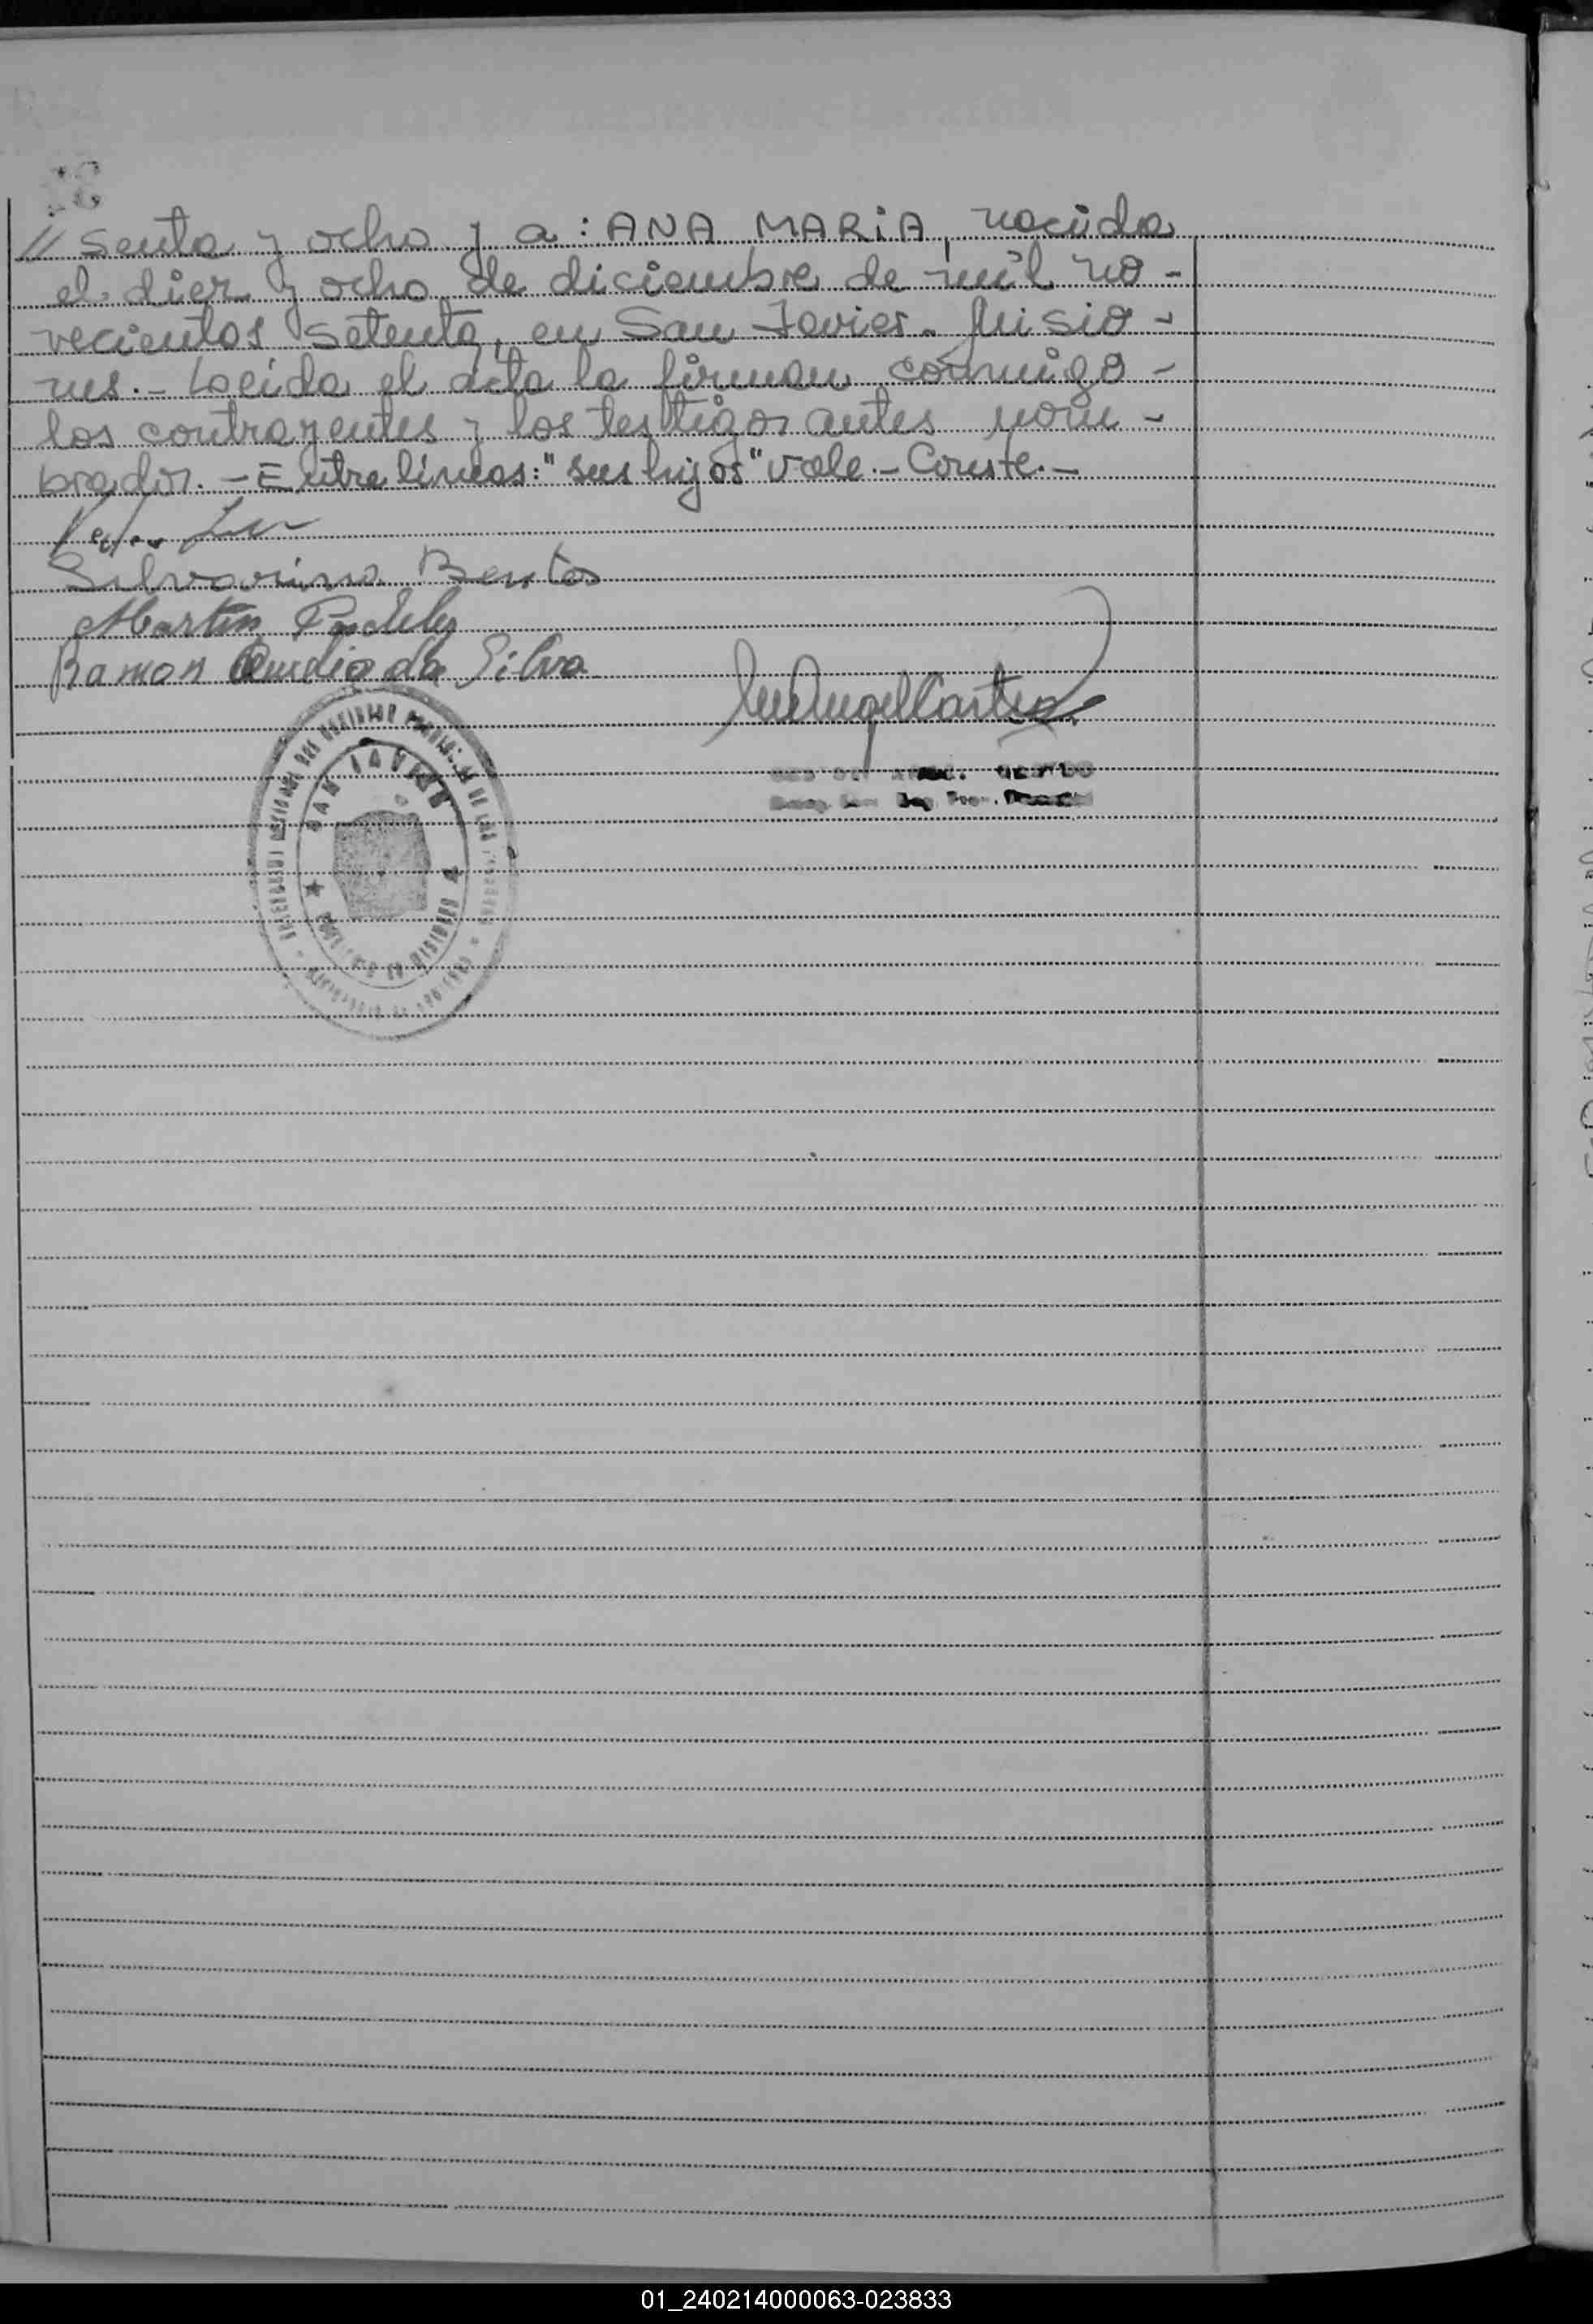 // senta y ocho y a: ANA MARIA, nacida
el diez y ocho de diciembre de mil no-
vecientos setenta, en San Javier. Misio-
nes.- Leída el acta la firman conmigo-
los contrayentes y los testigos antes nom-
brados.- Entre líneas: "sus hijos" vale.- Conste.-
Silvorina Bentos
Martin
Ramon da Silva
SAN JAVIER
MISIONES
01_240214000063-023833